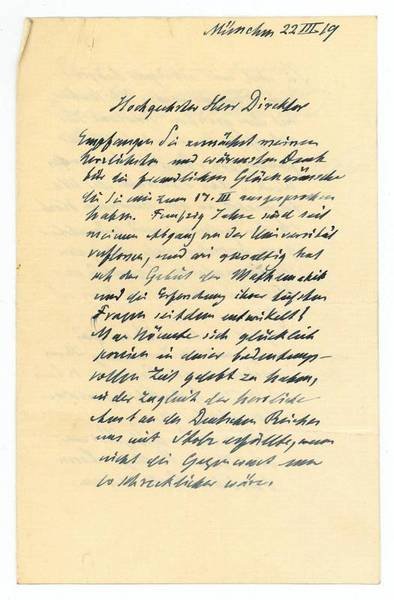 München 22 III 19
Hochgeehrter Herr Direktor
Empfangen Sie zunächst meinen
herzlichsten und wärmsten Dank
für die freundlichen Glückwünsche
die Sie mir zum 17. III ausgesprochen
haben. Funfzig Jahre sind seit
meinem Abgang von der Universität
verflossen, und wie gewaltig hat
sich das Gebiet der Mathematik
und die Erforschung ihrer tiefsten
Fragen seitdem entwickelt!
Man könnte sich glücklich
preisen in dieser bedeutungs-
vollen Zeit gelebt zu haben,
in der zugleich der herrliche
des Deutschen Reiches
uns mit Stolz erfüllte, wenn
nicht die Gegenwart nur
so schrecklicher wäre.